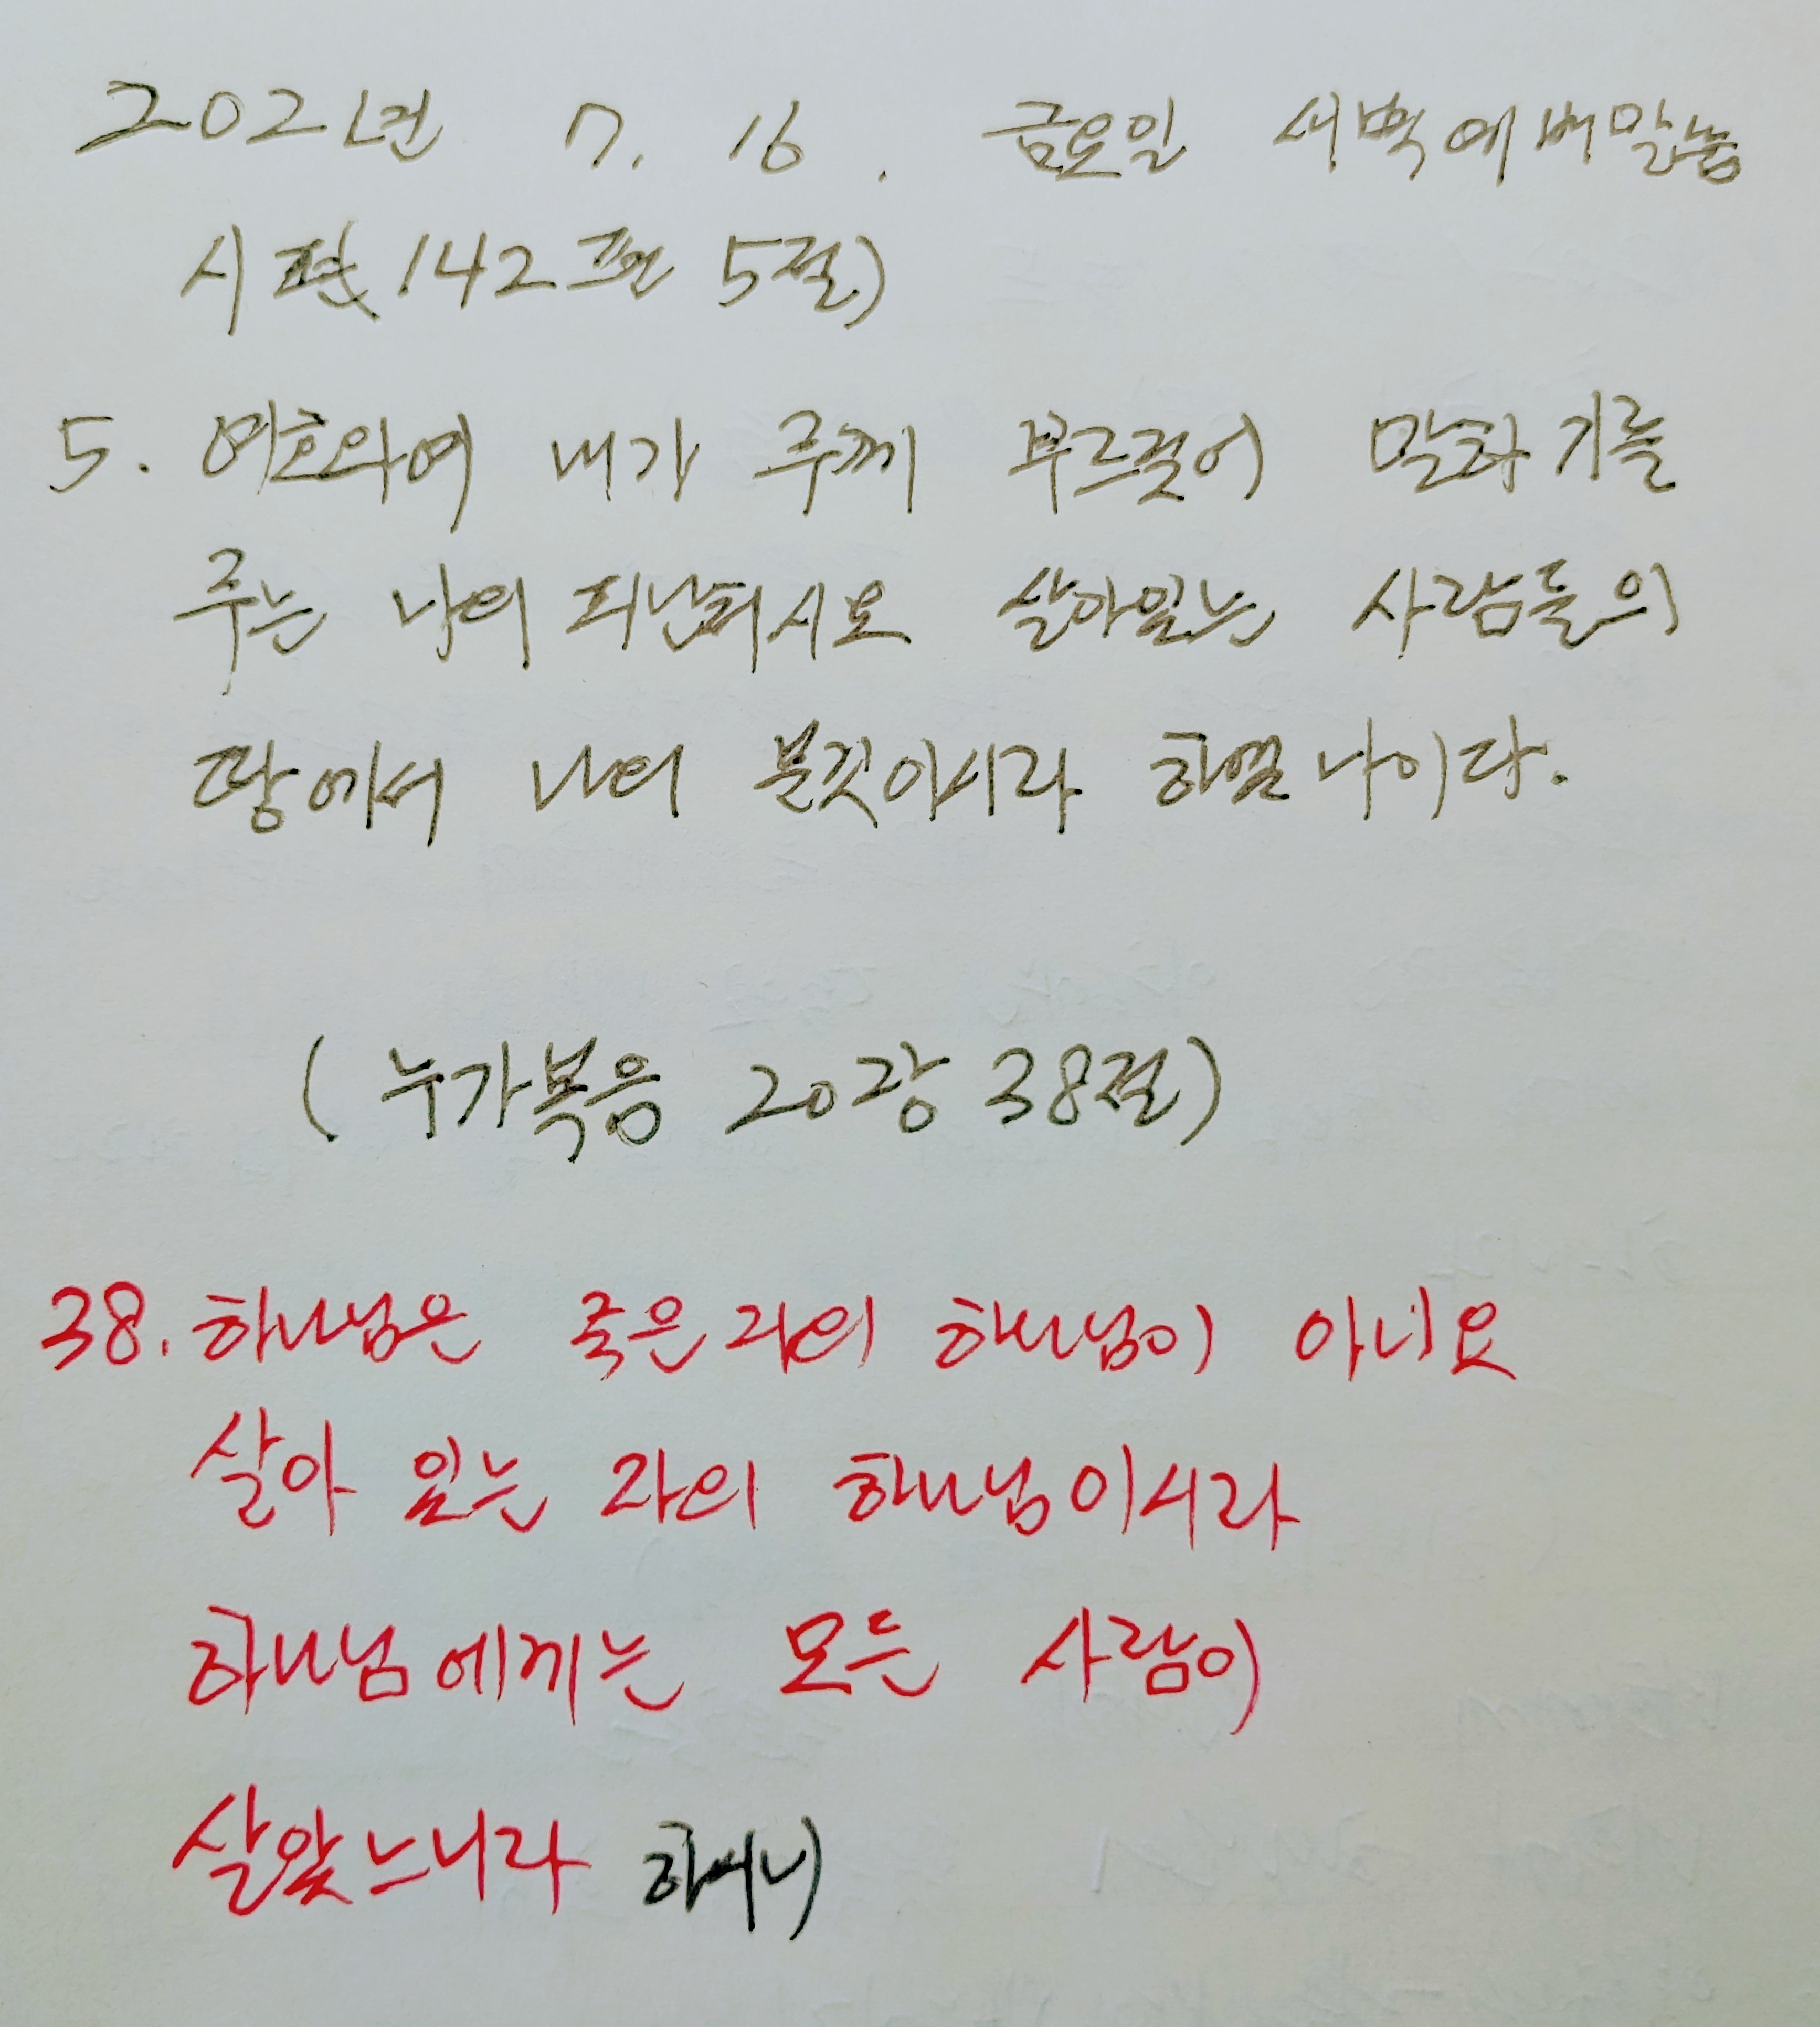 2021년 7. 16. 금요일 새벽예배말씀
시편 142편 5절)
5. 여호와여 내가 주께 부르짖어 말하기를
주는 나의 피난처시요 살아있는 사람들의
땅에서 나의 분깃이시라 하였나이다.
( 누가복음 20장 38절)
38. 하나님은 죽은 자의 하나님이 아니요
살아 있는 자의 하나님이시라
하나님에게는 모든 사람이
살았느니라 하시니